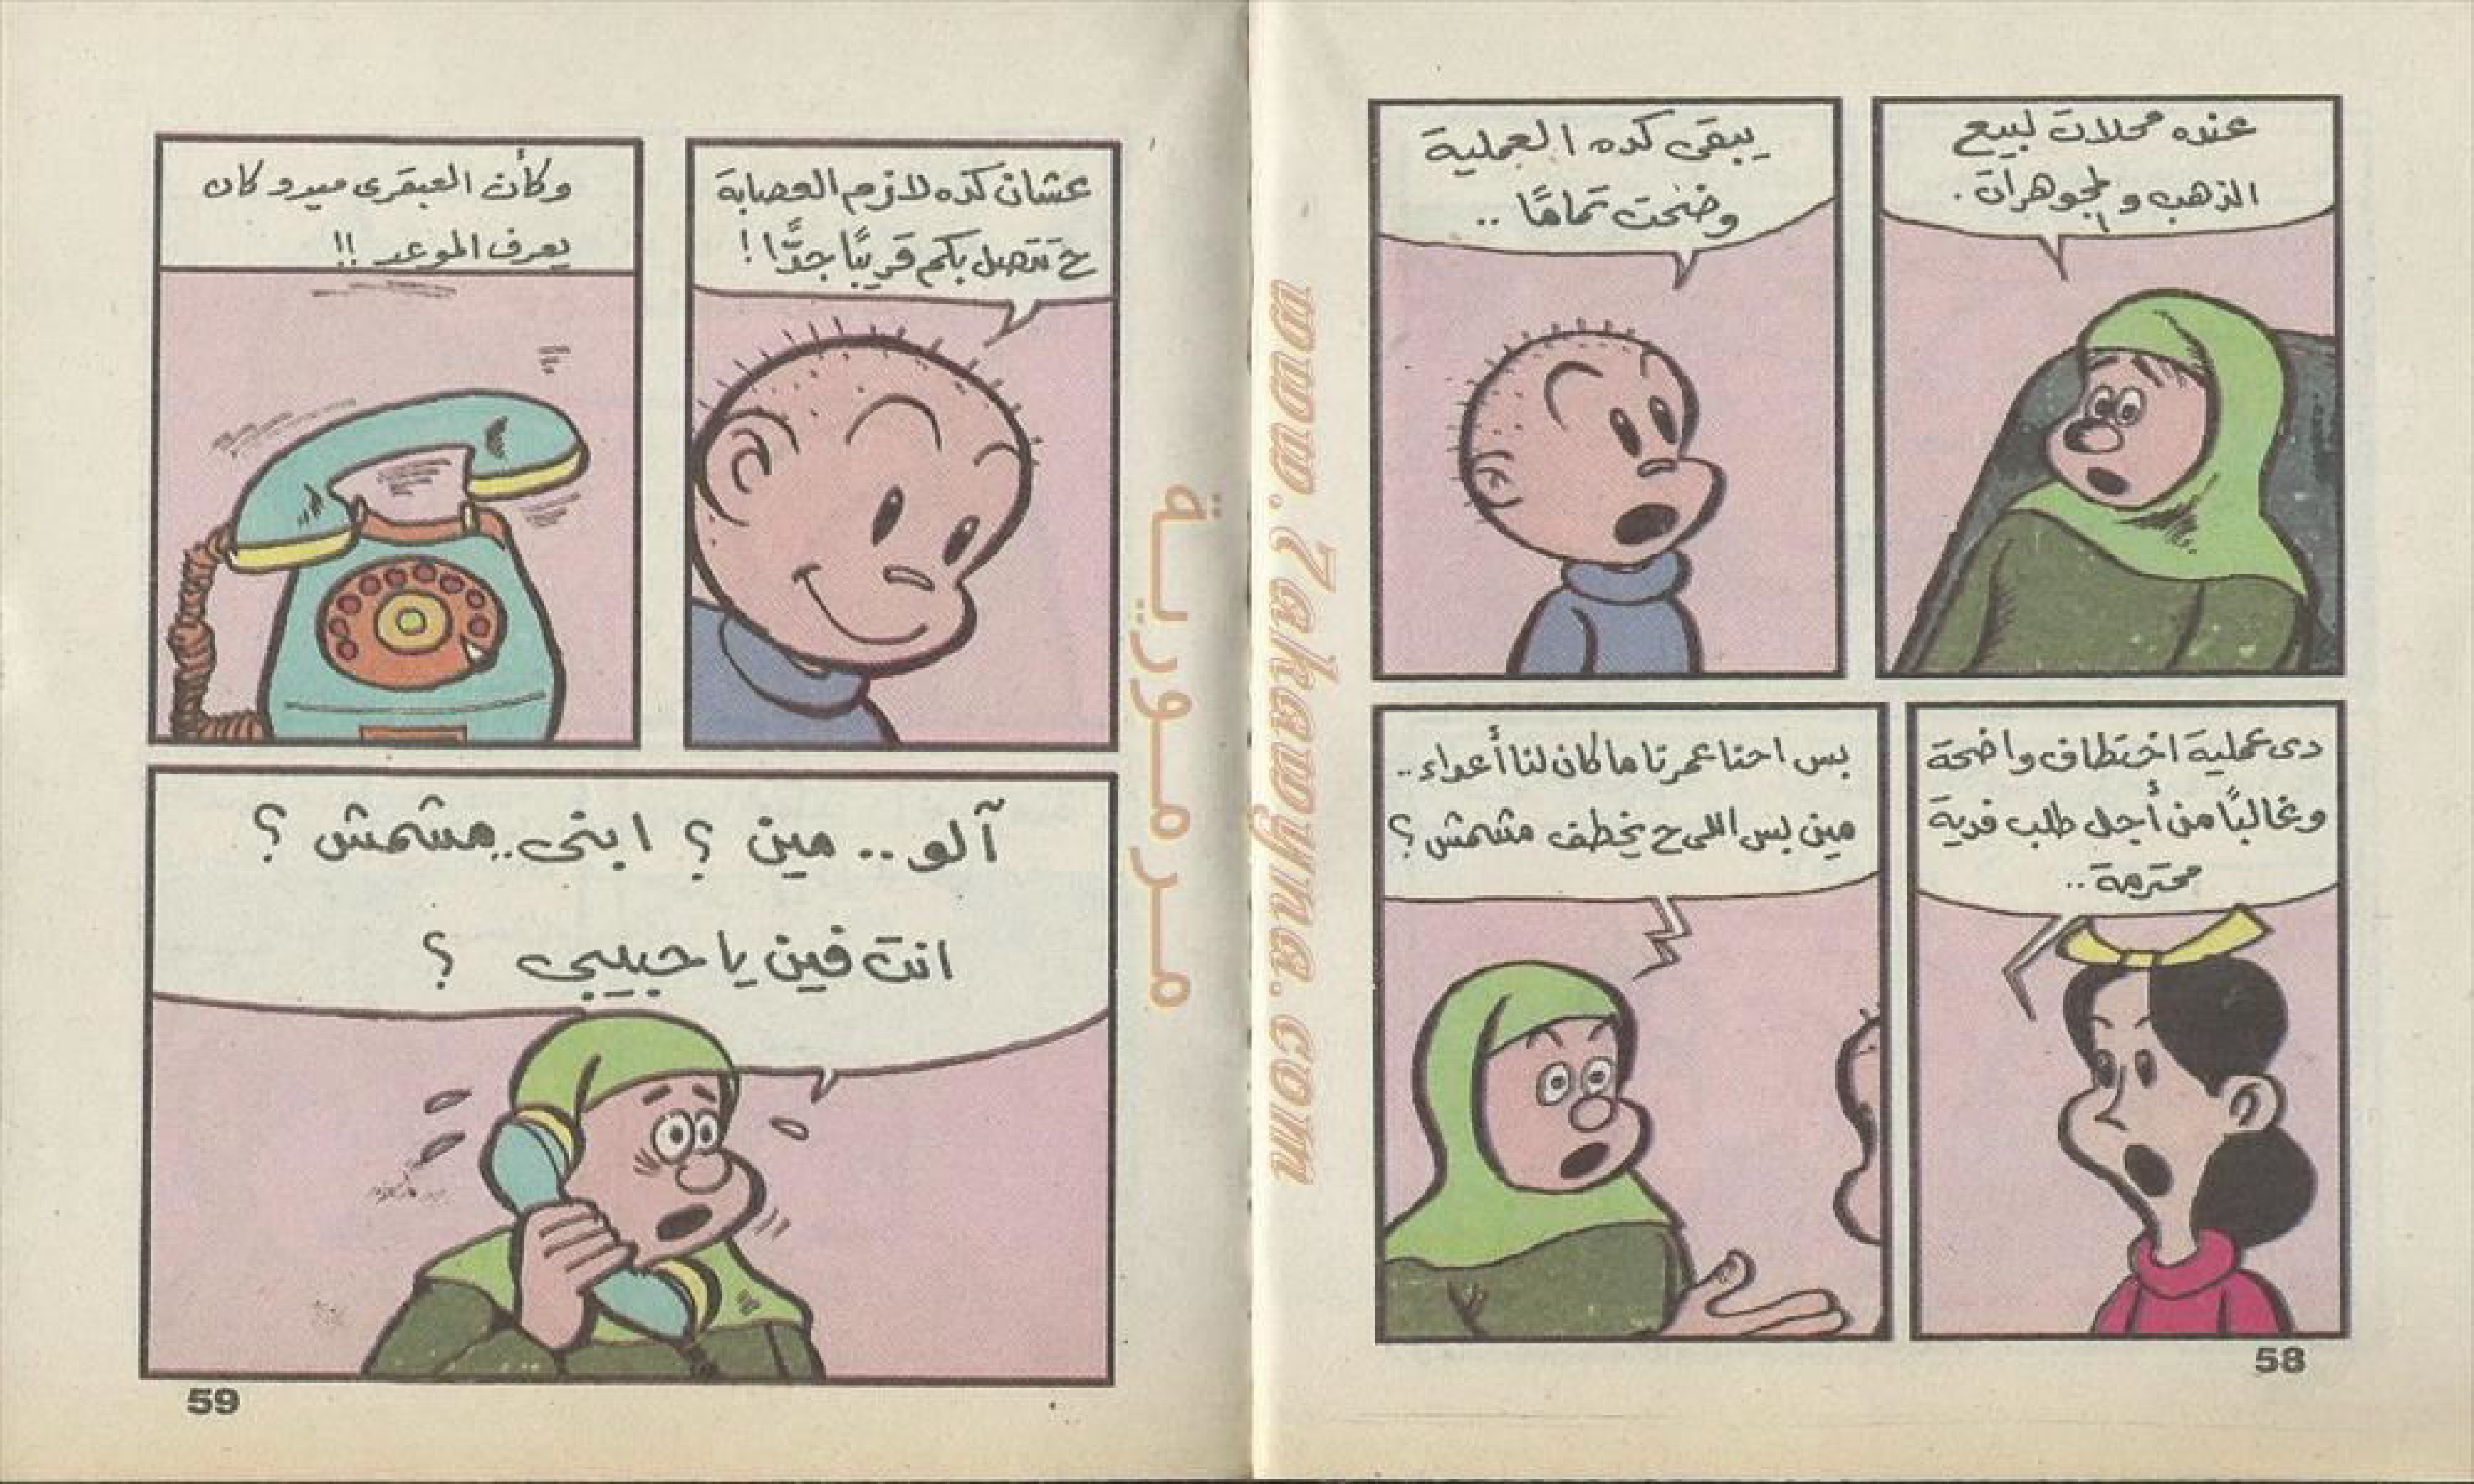 عنده محلات لبيع
الذهب والمجوهرات.
يبقى كده العملية
وضحت تمامًا ..
دى عملية اختطاف واضحة
وغالبًا من أجل طلب فدية
محترمة ..
بس احنا عمرنا ما كان لنا أعداء ..
مين بس اللى ح يخطف مشمش ؟
58
عشان كده لازم العصابة
ح تتصل بكم قريبًا جدًّا !
وكأن العبقرى ميدو كان
يعرف الموعد !!
آلو .. مين ؟ ابنى .. مشمش ؟
انت فين يا حبيبى ؟
59
مرمورية
www.Zakawyna.com